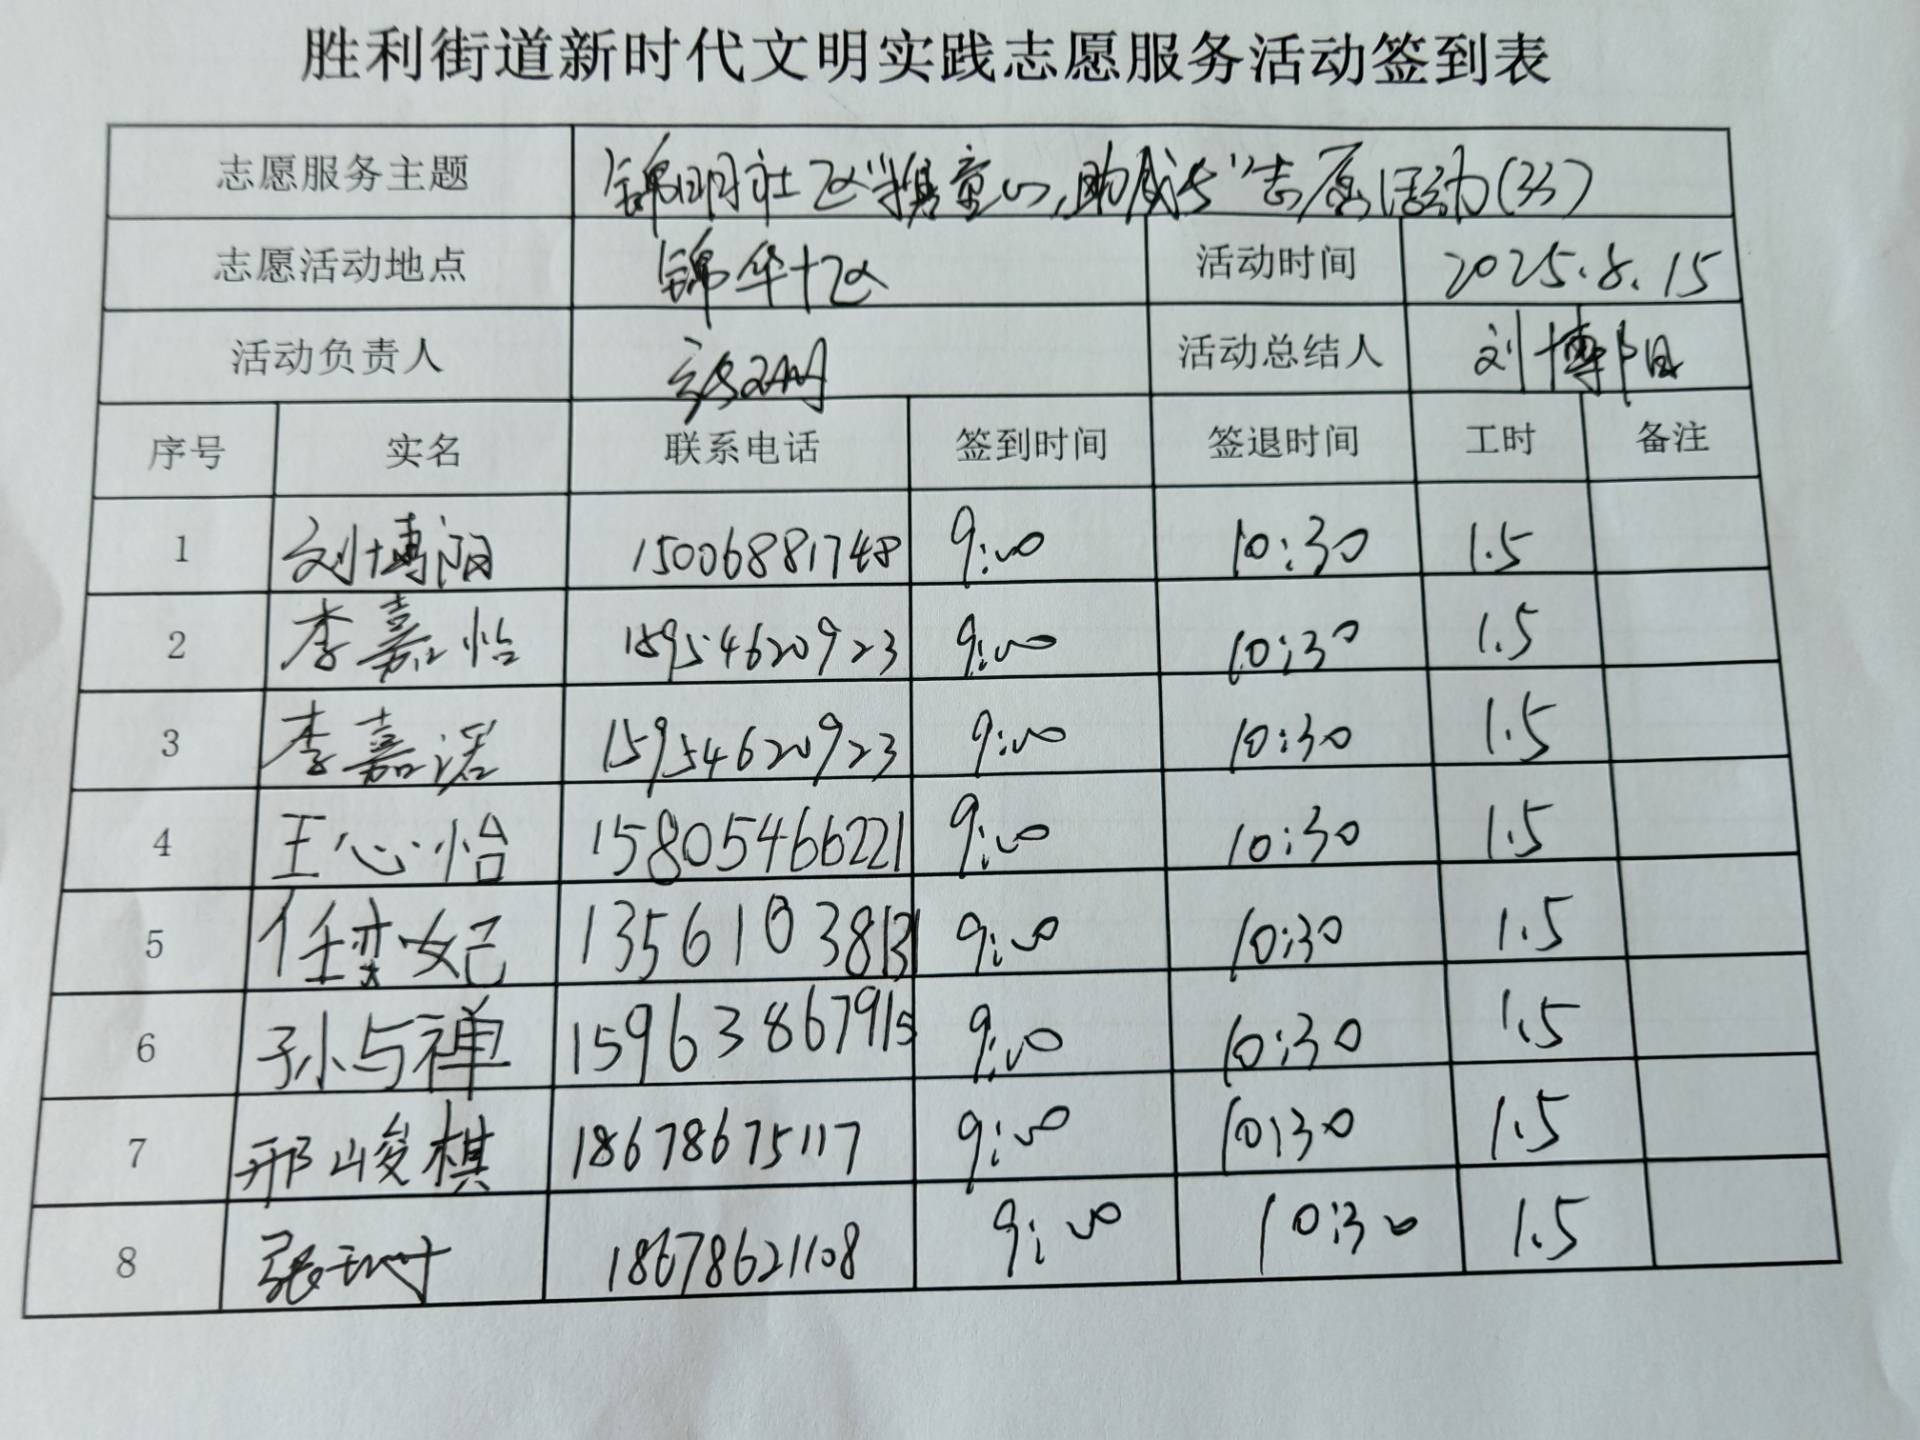 胜利街道新时代文明实践志愿服务活动签到表
志愿服务主题 锦明社区“携童心,助成长”志愿活动(33)
志愿活动地点 锦华十区 活动时间 2025.8.15
活动负责人 活动总结人 刘博阳
序号 实名 联系电话 签到时间 签退时间 工时 备注
1 刘博阳 15006881748 9:00 10:30 1.5
2 李嘉怡 15954620923 9:00 10:30 1.5
3 李嘉诺 15954620923 9:00 10:30 1.5
4 王心怡 15805466221 9:00 10:30 1.5
5 任奕妃 13561038131 9:00 10:30 1.5
6 孙与禅 15963867915 9:00 10:30 1.5
7 邢峻棋 18678675117 9:00 10:30 1.5
8 18678621108 9:00 10:30 1.5